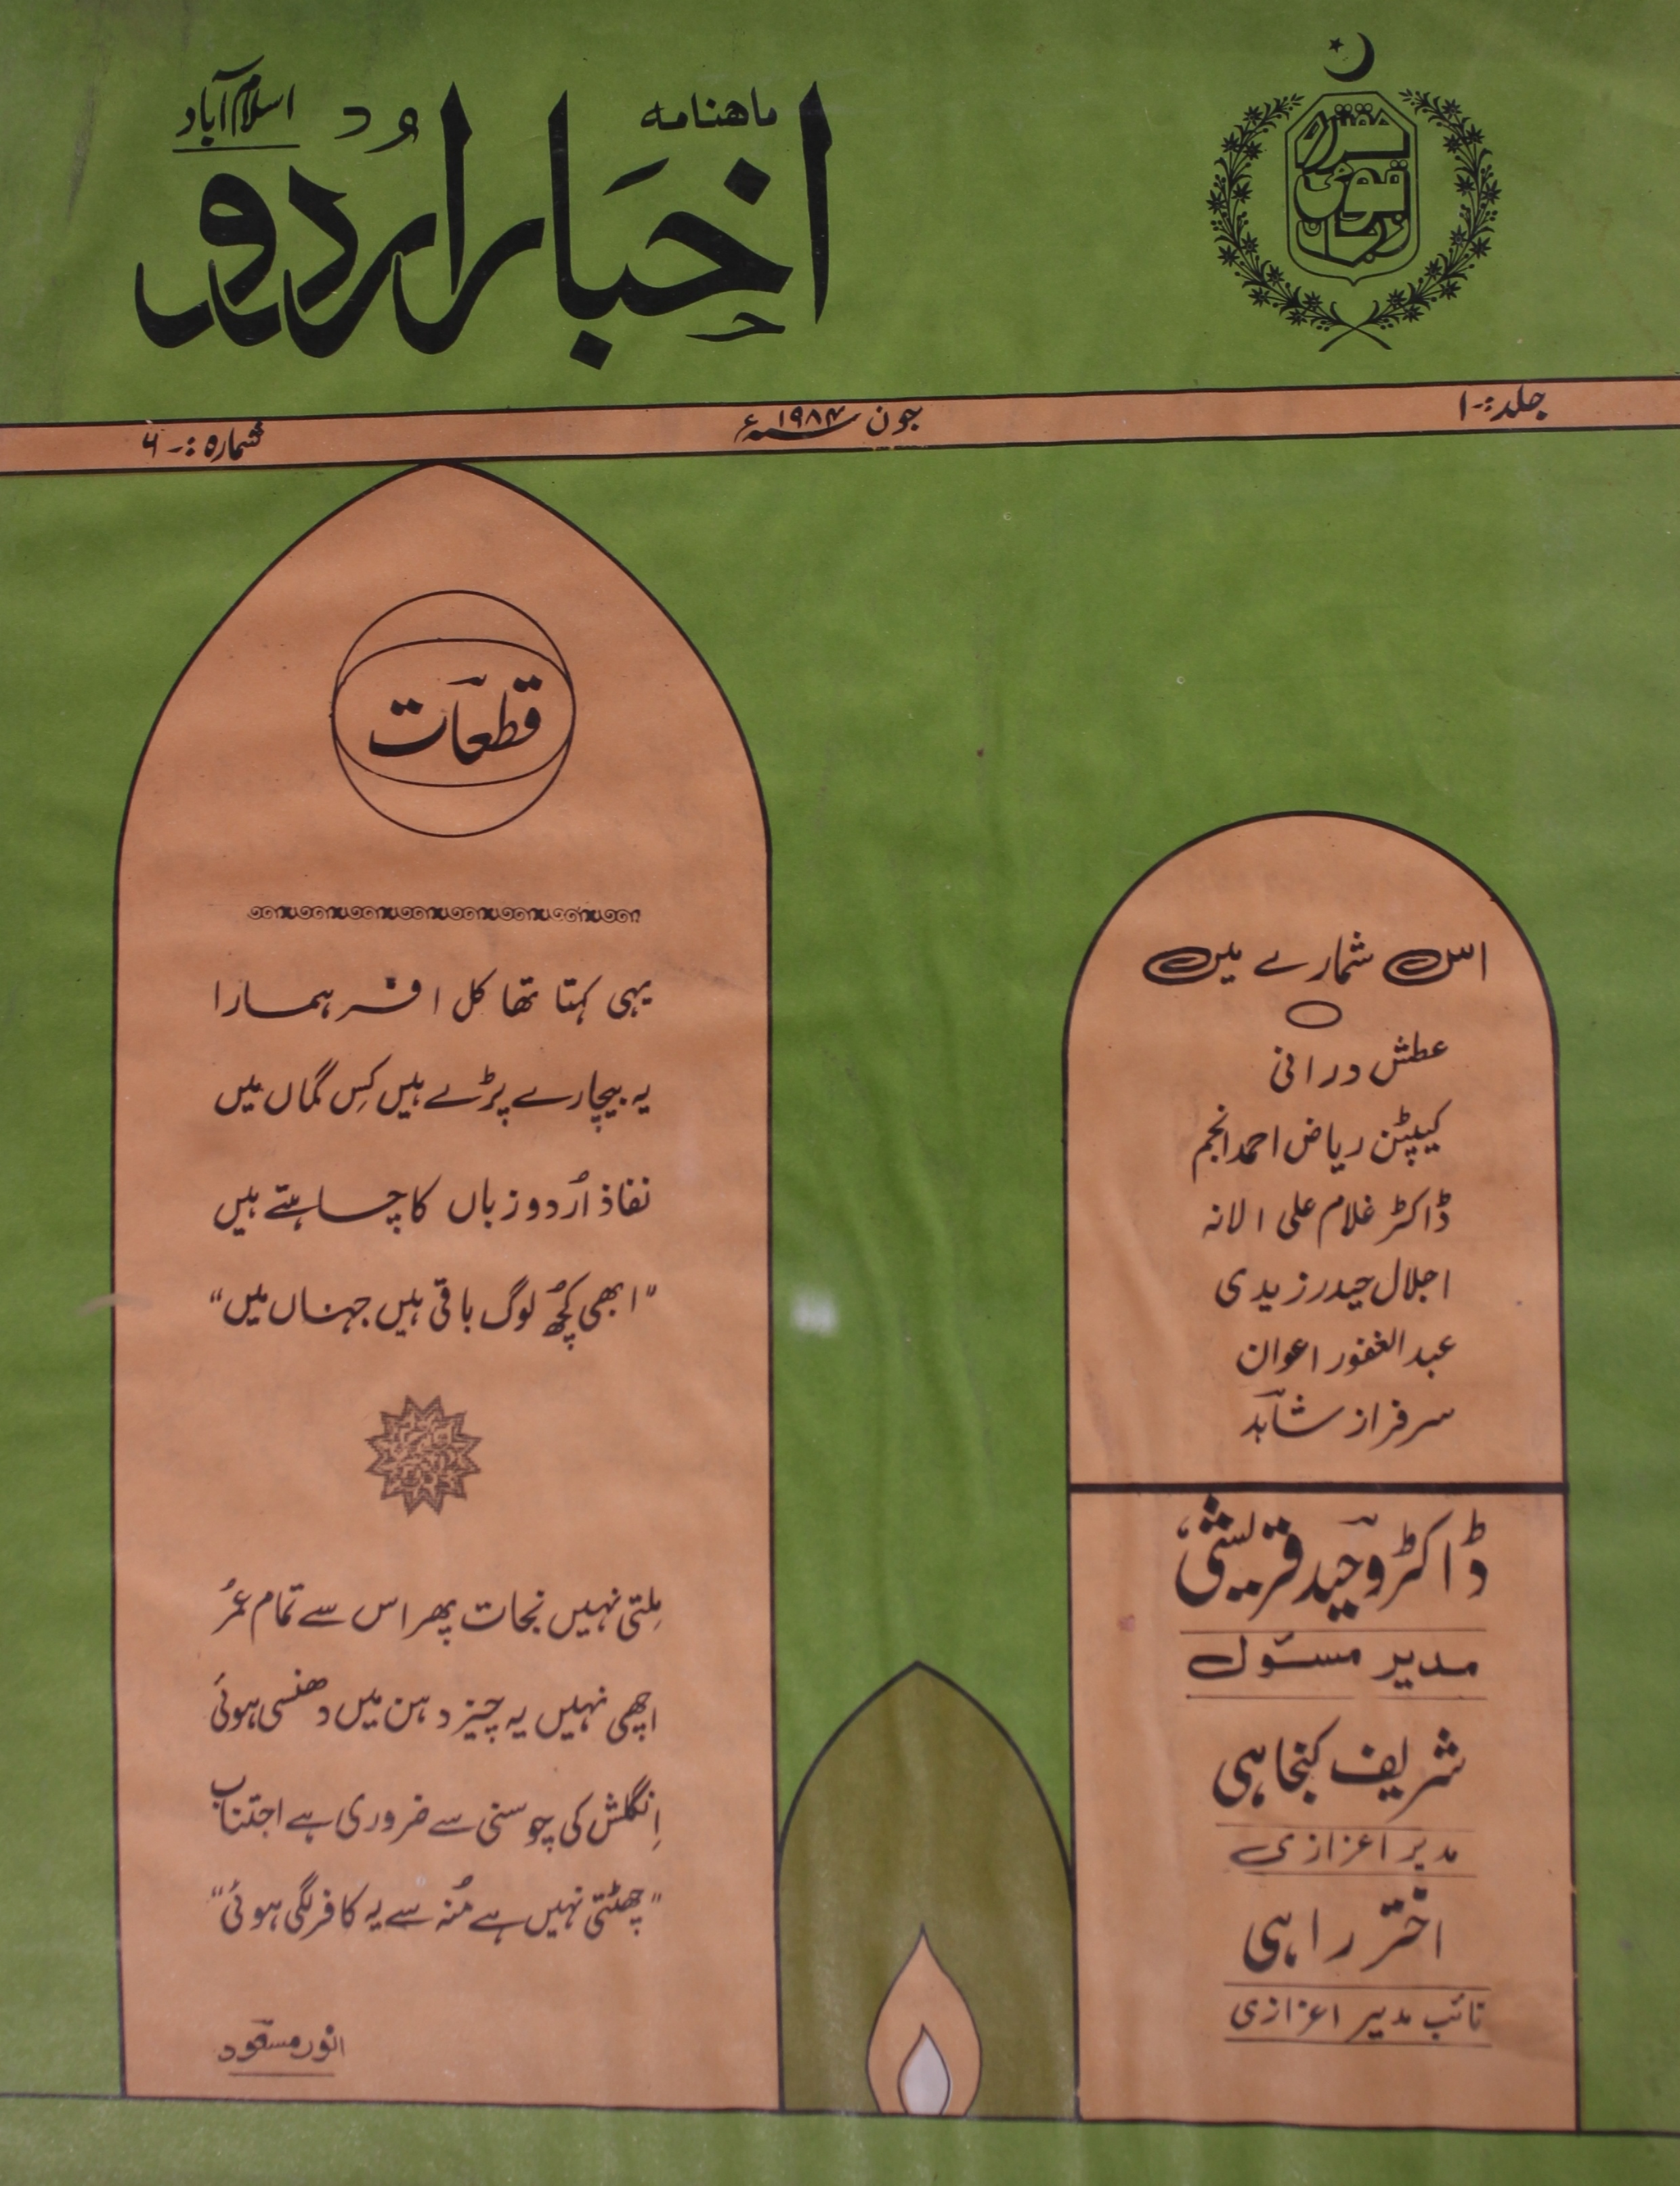 ماهنامه
اخبار اردو
اسلام آباد
مقتدره
قومی
زبان
جلد:۔۱
جون ۱۹۸۴ء
شمارہ:۔۶
قطعات
یہی کہتا تھا کل افسر ہمارا
یہ بیچارے پڑے ہیں کِس گماں میں
نفاذ اُردو زباں کا چاہتے ہیں
"ابھی کچُھ لوگ باقی ہیں جہناں میں"
مِلتی نہیں نجات پھر اس سے تمام عمُر
اچھی نہیں یہ چیز دہن میں دھنسی ہوئی
اِنگلش کی چوسنی سے ضروری ہے اجتناب
"چھٹتی نہیں ہے مُنہ سے یہ کافر لگی ہوئی"
انور مسعود
اس شمارے میں
عطش درانی
کیپٹن ریاض احمد انجم
ڈاکٹر غلام علی الانہ
اجلال حیدر زیدی
عبدالغفور اعوان
سرفراز شاہد
ڈاکٹر وحید قریشی
مدیر مسئول
شریف کنجاہی
مدیر اعزازی
اختر راہی
نائب مدیر اعزازی